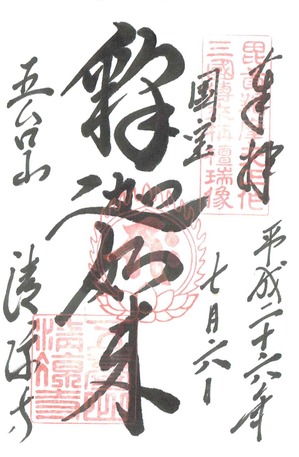 奉拝
平成二十六年
七月六日
三國傳来栴檀瑞像
国宝
釋迦如来
五台山
清凉寺